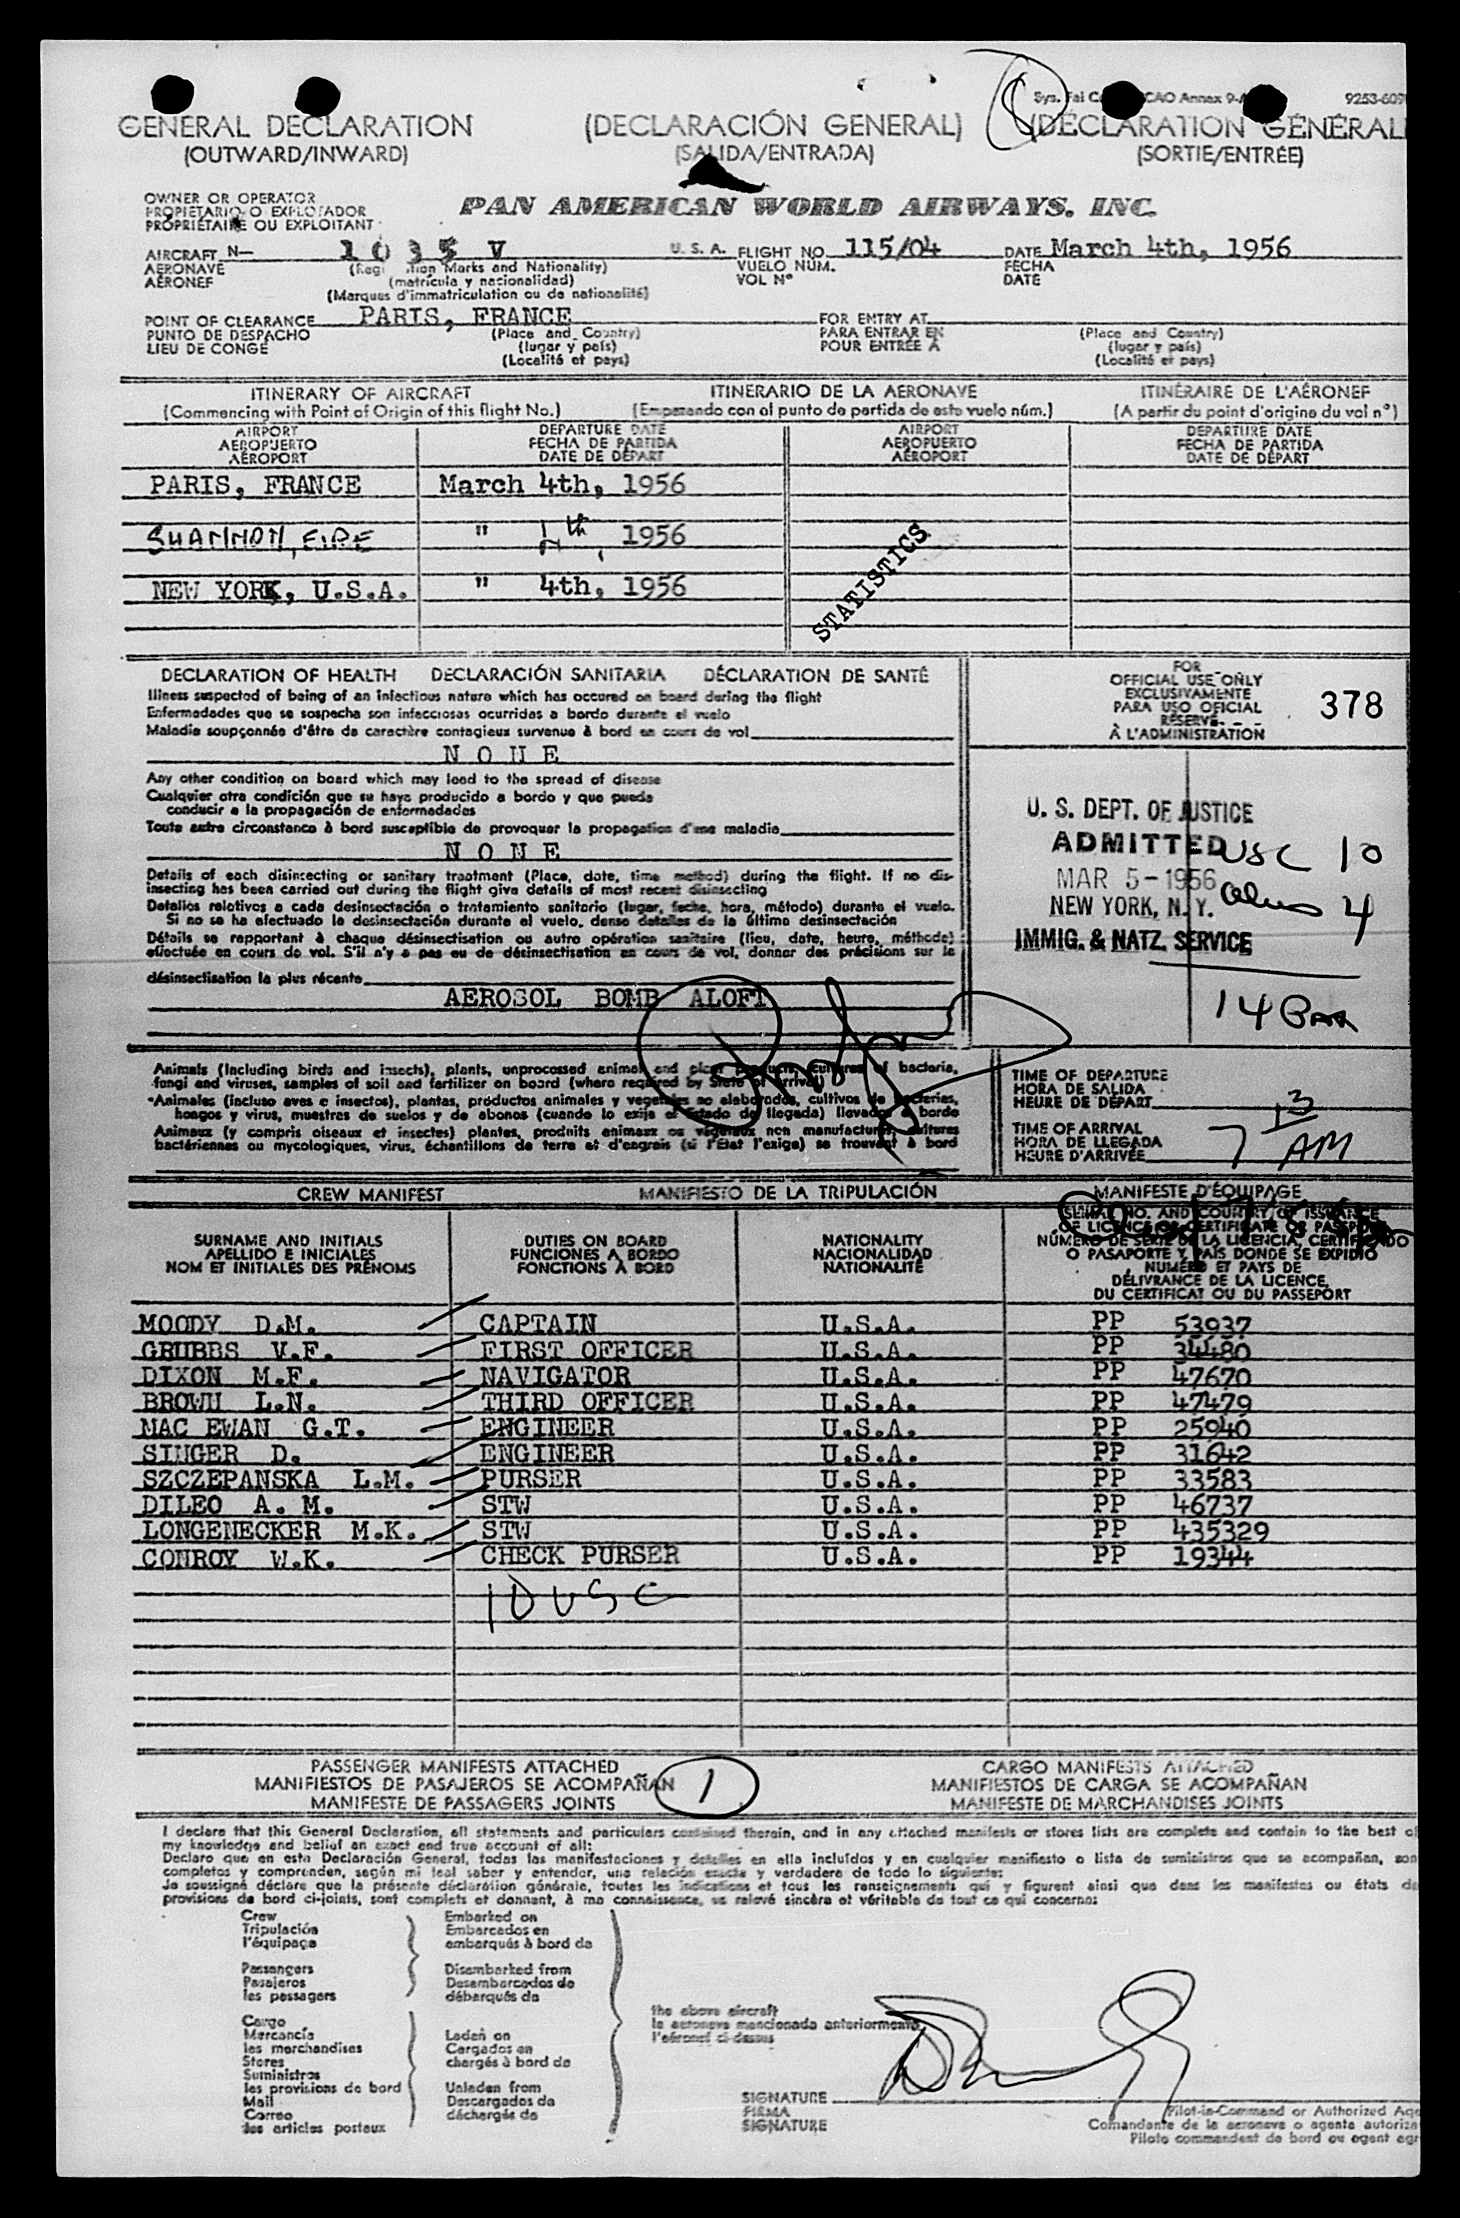 9253-609
GENERAL DECLARATION (DECLARACIÓN GENERAL) (DÉCLARATION GÉNÉRAL
(OUTWARD/INWARD) (SALIDA/ENTRADA) (SORTIE/ENTRÉE)
OWNER OR OPERATOR
PROPIETARIO O EXPLOTADOR
PROPRIÉTAIRE OU EXPLOITANT
PAN AMERICAN WORLD AIRWAYS, INC.
AIRCRAFT N— 1035 V U. S. A. FLIGHT NO. 115/04 DATE March 4th, 1956
AERONAVE (Registration Marks and Nationality) VUELO NÚM. FECHA
AÉRONEF (matrícula y nacionalidad) VOL Nº DATE
(Marques d'immatriculation ou de nationalité)
POINT OF CLEARANCE PARIS, FRANCE FOR ENTRY AT
PUNTO DE DESPACHO (Place and Country) PARA ENTRAR EN (Place and Country)
LIEU DE CONGÉ (lugar y país) POUR ENTRÉE À (lugar y país)
(Localité et pays) (Localité et pays)
ITINERARY OF AIRCRAFT ITINERARIO DE LA AERONAVE ITINÉRAIRE DE L'AÉRONEF
(Commencing with Point of Origin of this flight No.) (Empezando con el punto de partida de este vuelo núm.) (A partir du point d'origine du vol nº)
AIRPORT DEPARTURE DATE AIRPORT DEPARTURE DATE
AEROPUERTO FECHA DE PARTIDA AEROPUERTO FECHA DE PARTIDA
AÉROPORT DATE DE DÉPART AÉROPORT DATE DE DÉPART
PARIS, FRANCE March 4th, 1956
SHANNON, EIRE " 4th, 1956
NEW YORK, U.S.A. " 4th, 1956
STATISTICS
DECLARATION OF HEALTH DECLARACIÓN SANITARIA DÉCLARATION DE SANTÉ
Illness suspected of being of an infectious nature which has occured on board during the flight
Enfermedades que se sospecha son infecciosas ocurridas a bordo durante el vuelo
Maladie soupçonnée d'être de caractère contagieux survenue à bord en cours de vol
NONE
Any other condition on board which may lead to the spread of disease
Cualquier otra condición que se haya producido a bordo y que pueda
conducir a la propagación de enfermedades
Toute autre circonstance à bord susceptible de provoquer la propagation d'une maladie
NONE
Details of each disinsecting or sanitary treatment (Place, date, time method) during the flight. If no dis-
insecting has been carried out during the flight give details of most recent disinsecting
Detalles relativos a cada desinsectación o tratamiento sanitario (lugar, fecha, hora, método) durante el vuelo.
Si no se ha efectuado la desinsectación durante el vuelo, dense detalles de la última desinsectación
Détails se rapportant à chaque désinsectisation ou autre opération sanitaire (lieu, date, heure, méthode)
effectuée en cours de vol. S'il n'y a pas eu de désinsectisation en cours de vol, donner des précisions sur la
désinsectisation la plus récente
AEROSOL BOMB ALOFT
FOR
OFFICIAL USE ONLY
EXCLUSIVAMENTE
PARA USO OFICIAL
RÉSERVÉ
À L'ADMINISTRATION
378
U. S. DEPT. OF JUSTICE
ADMITTED USC 10
MAR 5-1956
NEW YORK, N.Y. Aliens 4
IMMIG. & NATZ. SERVICE
14
Animals (Including birds and insects), plants, unprocessed animal and plant products, cultures of bacteria,
fungi and viruses, samples of soil and fertilizer on board (where required by State of Arrival)
Animales (incluso aves e insectos), plantas, productos animales y vegetales no elaborados, cultivos de bacterias,
hongos y virus, muestras de suelos y de abonos (cuando lo exija el Estado de llegada) llevados a bordo
Animaux (y compris oiseaux et insectes) plantes, produits animaux ou végétaux non manufacturés, cultures
bactériennes ou mycologiques, virus, échantillons de terre et d'engrais (si l'État l'exige) se trouvant à bord
TIME OF DEPARTURE
HORA DE SALIDA
HEURE DE DÉPART
TIME OF ARRIVAL
HORA DE LLEGADA
HEURE D'ARRIVÉE
7 13 AM
CREW MANIFEST MANIFIESTO DE LA TRIPULACIÓN MANIFESTE D'ÉQUIPAGE
SURNAME AND INITIALS
APELLIDO E INICIALES
NOM ET INITIALES DES PRÉNOMS
DUTIES ON BOARD
FUNCIONES A BORDO
FONCTIONS À BORD
NATIONALITY
NACIONALIDAD
NATIONALITÉ
SERIAL NO. AND COUNTRY OF ISSUANCE
OF LICENCE OR CERTIFICATE OR PASSPORT
NÚMERO DE SERIE DE LA LICENCIA, CERTIFICADO
O PASAPORTE Y PAÍS DONDE SE EXPIDIÓ
NUMÉRO ET PAYS DE
DÉLIVRANCE DE LA LICENCE,
DU CERTIFICAT OU DU PASSEPORT
MOODY D.M. CAPTAIN U.S.A. PP 53937
GRUBBS V.F. FIRST OFFICER U.S.A. PP 34480
DIXON M.F. NAVIGATOR U.S.A. PP 47670
BROWN L.N. THIRD OFFICER U.S.A. PP 47479
MAC EWAN G.T. ENGINEER U.S.A. PP 25940
SINGER D. ENGINEER U.S.A. PP 31642
SZCZEPANSKA L.M. PURSER U.S.A. PP 33583
DILEO A. M. STW U.S.A. PP 46737
LONGENECKER M.K. STW U.S.A. PP 435329
CONROY W.K. CHECK PURSER U.S.A. PP 19344
10 USC
PASSENGER MANIFESTS ATTACHED CARGO MANIFESTS ATTACHED
MANIFIESTOS DE PASAJEROS SE ACOMPAÑAN 1 MANIFIESTOS DE CARGA SE ACOMPAÑAN
MANIFESTE DE PASSAGERS JOINTS MANIFESTE DE MARCHANDISES JOINTS
I declare that this General Declaration, all statements and particulars contained therein, and in any attached manifests or stores lists are complete and contain to the best of
my knowledge and belief an exact and true account of all:
Declaro que en esta Declaración General, todas las manifestaciones y detalles en ella incluídos y en cualquier manifiesto o lista de suministros que se acompañan, son
completos y comprenden, según mi leal saber y entender, una relación exacta y verdadera de todo lo siguiente:
Je soussigné déclare que la présente déclaration générale, toutes les indications et tous les renseignements qui y figurent ainsi que dans les manifestes ou états de
provisions de bord ci-joints, sont complets et donnent, à ma connaissance, un relevé sincère et véritable de tout ce qui concerne:
Crew Embarked on
Tripulación Embarcados en
l'équipage embarqués à bord de
Passengers Disembarked from
Pasajeros Desembarcados de
les passagers débarqués de
the above aircraft
la aeronave mencionada anteriormente
l'aéronef ci-dessus
Cargo
Mercancía Laden on
les marchandises Cargados en
Stores chargés à bord de
Suministros
les provisions de bord Unladen from
Mail Descargados de
Correo déchargés de
les articles postaux
SIGNATURE
FIRMA
SIGNATURE
Pilot-in-Command or Authorized Age
Comandante de la aeronave o agente autoriza
Pilote commandant de bord ou agent agr